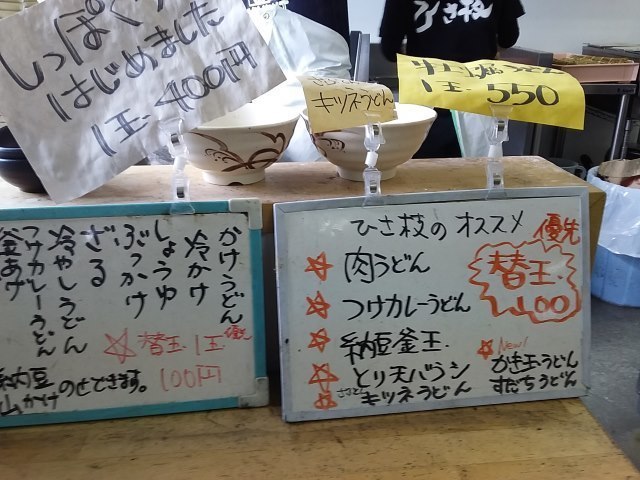 しっぽく
はじめました
1玉 400円
ひさ枝
キツネうどん
1玉 550
かけうどん
冷かけ
しょうゆ
ぶっかけ
ざる
冷やしうどん
つけカレーうどん
釜あげ
☆替玉 1玉 優先
100円
納豆
山かけ のせできます。
ひさ枝のオススメ
優先
替玉
100
☆肉うどん
☆つけカレーうどん
☆納豆釜玉
☆とり天バラシ
☆キツネうどん
New!
☆かき玉うどん
すだちうどん